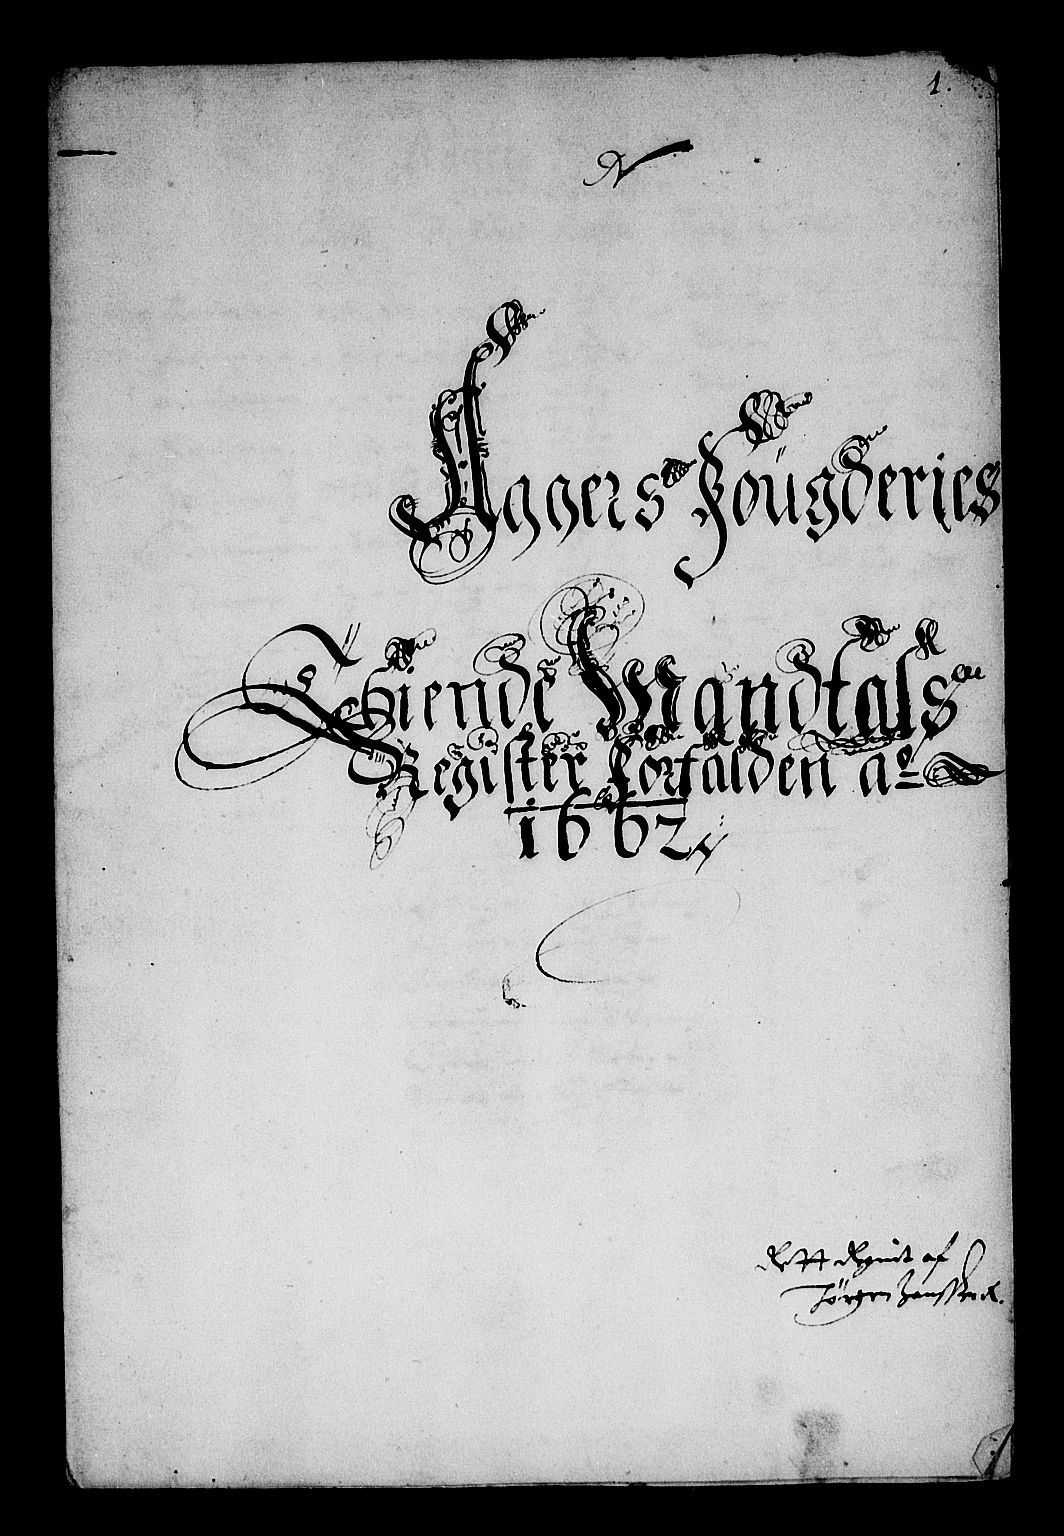 1.
N
Aggers Fougderies
Thiende Mandtals
Register Forfalden ao
1662
Rett Regnit af
Jörgen Hansen